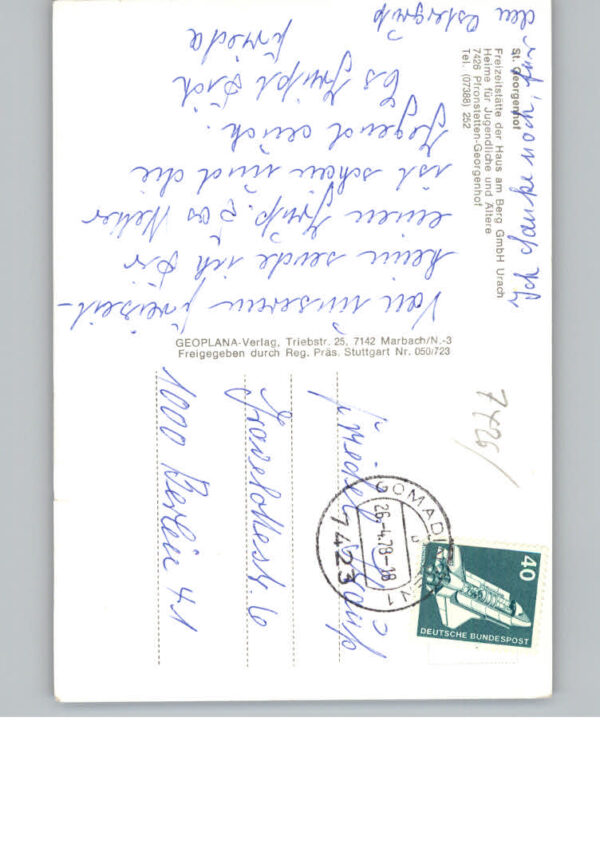 St. Georgenhof
Freizeitstätte der Haus am Berg GmbH Urach
Heime für Jugendliche und Ältere
7426 Pfronstetten-Georgenhof
Tel. (07388) 252
Von unserem Freizeit-
heim sende ich Dir
einen Gruß. Das Wetter
ist schön und die
Gegend auch.
Es grüßt Dich
Frieda
Ich danke noch für
den Ostergruß
GEOPLANA-Verlag, Triebstr. 25, 7142 Marbach/N.-3
Freigegeben durch Reg. Präs. Stuttgart Nr. 050/723
7426/
GOMADINGEN 1
26.-4.78-18
7423
40
DEUTSCHE BUNDESPOST
Gravelottestr. 6
1000 Berlin 41